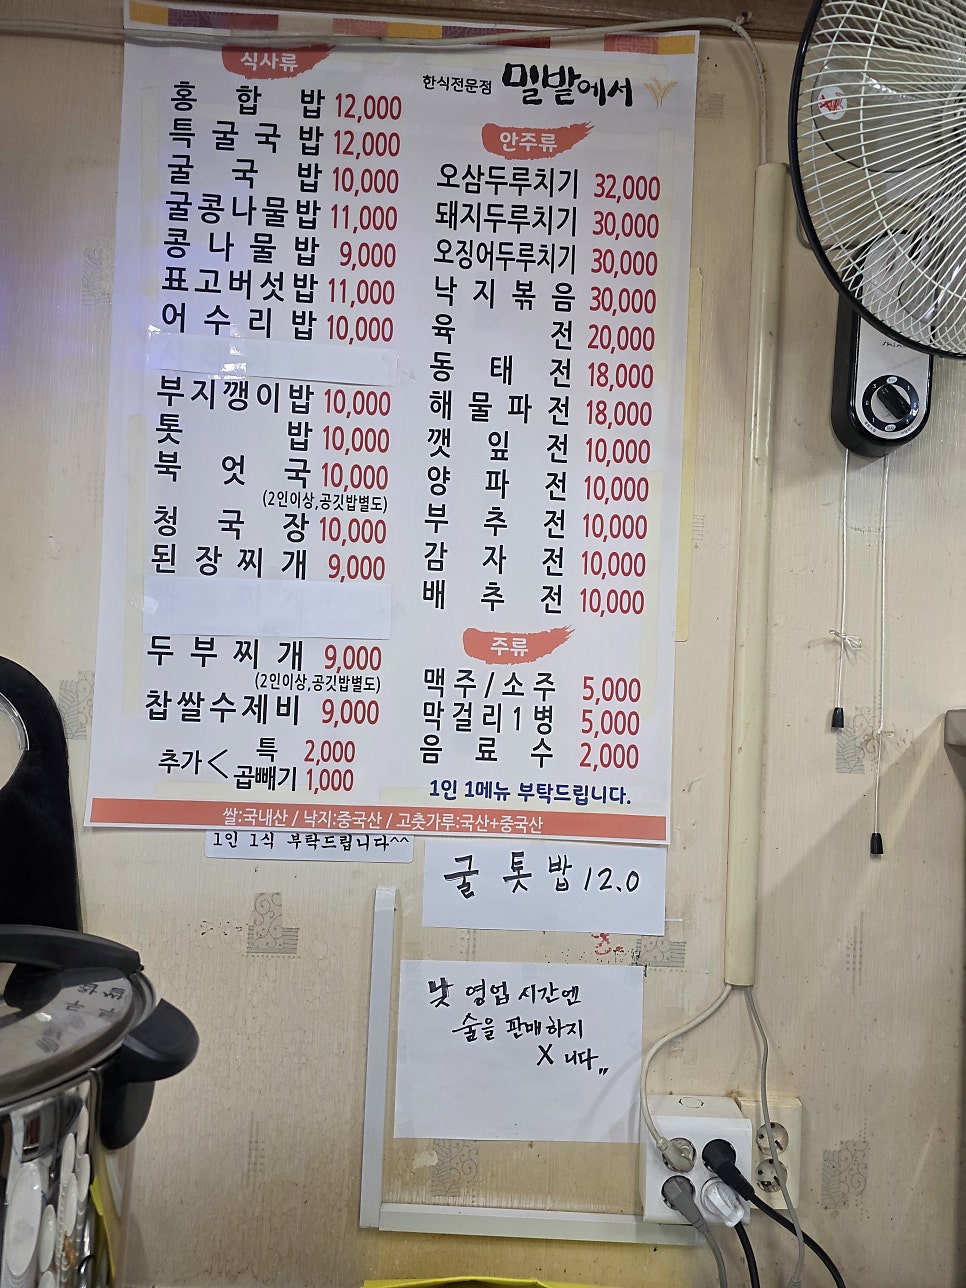 식사류
홍합밥 12,000
특굴국밥 12,000
굴국밥 10,000
굴콩나물밥 11,000
콩나물밥 9,000
표고버섯밥 11,000
어수리밥 10,000
부지깽이밥 10,000
톳밥 10,000
북엇국 10,000
(2인이상,공깃밥별도)
청국장 10,000
된장찌개 9,000
두부찌개 9,000
(2인이상,공깃밥별도)
찹쌀수제비 9,000
추가< 특 2,000
곱빼기 1,000
한식전문점 밀밭에서
안주류
오삼두루치기 32,000
돼지두루치기 30,000
오징어두루치기 30,000
낙지볶음 30,000
육전 20,000
동태전 18,000
해물파전 18,000
깻잎전 10,000
양파전 10,000
부추전 10,000
감자전 10,000
배추전 10,000
주류
맥주/소주 5,000
막걸리1병 5,000
음료수 2,000
1인 1메뉴 부탁드립니다.
쌀:국내산 / 낙지:중국산 / 고춧가루:국산+중국산
1인 1식 부탁드립니다^^
굴톳밥 12.0
낮 영업 시간엔
술을 판매하지
X니다„